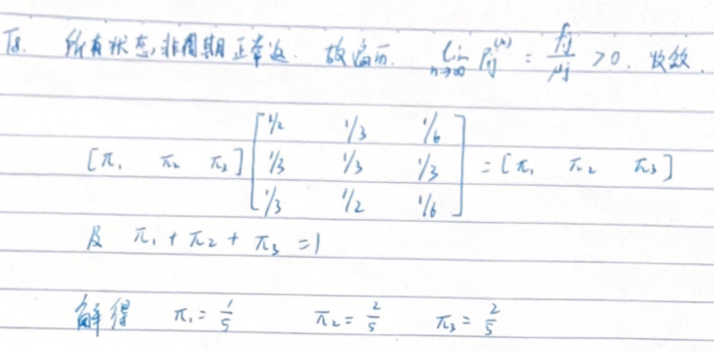 所有状态,非周期正常返. 故遍历. lim n→∞ Pij^(n) = fij/μj > 0. 收敛.
[π₁ π₂ π₃] [1/2 1/3 1/6
1/3 1/3 1/3
1/3 1/2 1/6] = [π₁ π₂ π₃]
及 π₁ + π₂ + π₃ = 1
解得 π₁ = 1/5 π₂ = 2/5 π₃ = 2/5